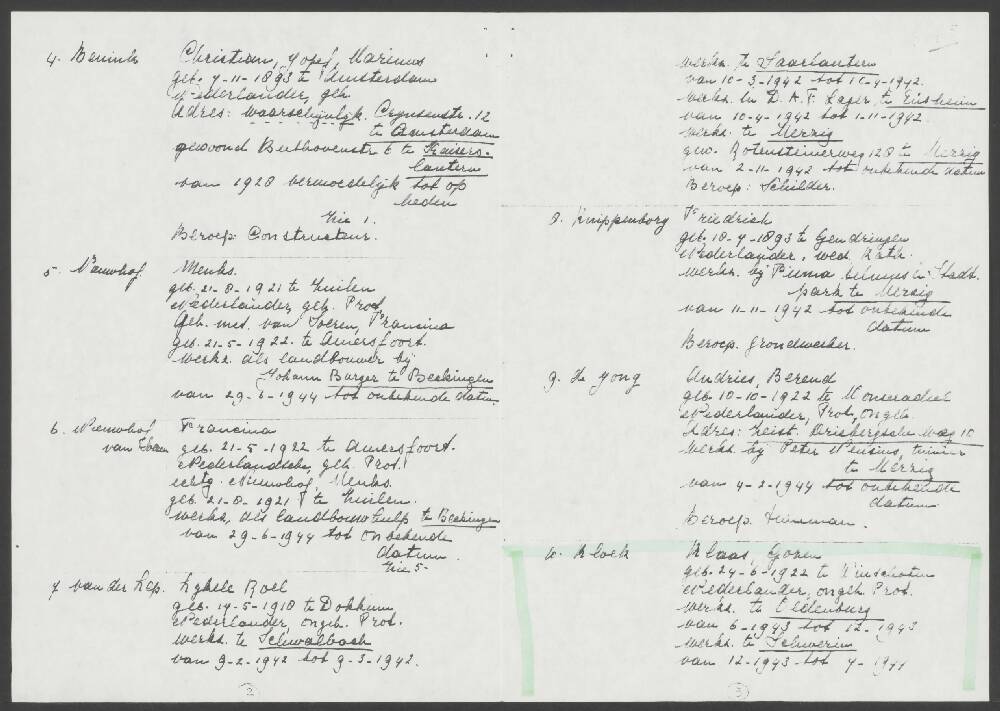 4. Benink Christiaan, Josef, Marinus
geb. 7-11-1893 te Amsterdam
Nederlander, geh.
Adres: waarschijnlijk 12
te Amsterdam
gewoond Beethovenstr 6 te Kaisers-
lautern
van 1928 vermoedelijk tot op
heden
Zie 1.
Beroep: Constructeur.
5. Nieuwhof Menks.
geb. 21-8-1921 te Zuilen
Nederlander, geh. Prot.
Geh. met. van Francina
geb. 21-5-1922. te Amersfoort.
werkz. als landbouwer bij
Johann Burger te Beckingen
van 29-6-1944 tot onbekende datum
6. Nieuwhof Francina
van geb. 21-5-1922 te Amersfoort.
Nederlandsche, geh. Prot.
echtg. Nieuwhof, Menks.
geb. 21-8-1921 te Zuilen.
werkz. als landbouwhulp te Beckingen
van 29-6-1944 tot onbekende
datum.
Zie 5-
7 van der Lep. Lykele Roel
geb. 14-5-1918 te Dokkum
Nederlander, ongeh. Prot.
werkz. te Schwalbach
van 9-2-1942 tot 9-3-1942.
2
werkz. te Saarlautern
van 10-3-1942 tot 10-4-1942.
werkz. in D.A.F. Lager te Ensheim
van 10-4-1942 tot 1-11-1942
werkz. te Merzig
gew. Rotensteinerweg 128 te Merzig
van 2-11-1942 tot onbekende datum
Beroep: Schilder.
8. Knippenborg Friedrich
geb. 18-7-1893 te Gendringen
Nederlander, wed. Kath.
werkz. bij Firma Stadt.
park te Merzig
van 11-11-1942 tot onbekende
datum
Beroep. grondwerker.
9. de Jong Andries, Berend
geb. 10-10-1922 te
Nederlander, Prot, ongeh.
Adres: Zeist. Driebergsche weg 10
werkz. bij Peter
te Merzig
van 4-2-1944 tot onbekende
datum
Beroep. Tuinman.
10. Kloek Klaas,
geb. 24-6-1922 te Winschoten
Nederlander, ongeh. Prot.
werkz. te Oldenburg
van 6-1943 tot 12-1943
werkz. te Schwerin
van 12-1943 tot 4-1944
3